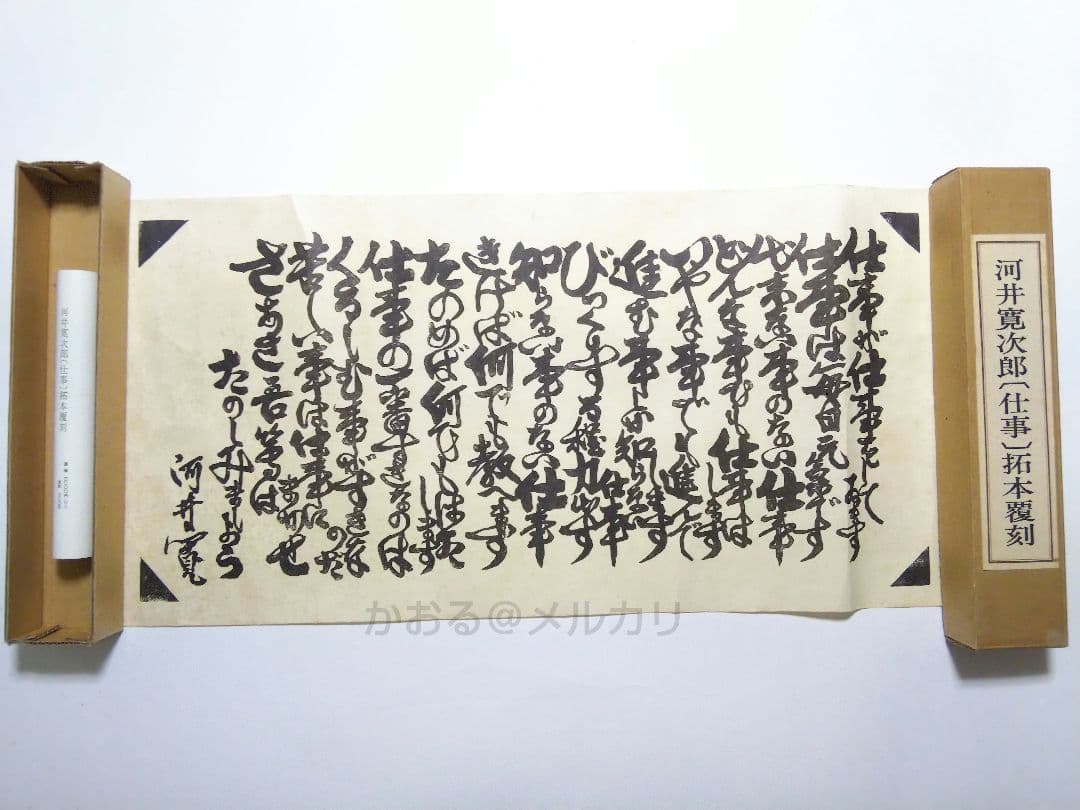 仕事が仕事をして
おります
仕事は毎日元気です
出来ない事のない仕事
どんな事でも仕事は
します
いやな事でも進んで
します
進む事しか知らない
仕事
びっくりする程力出す
知らない事のない仕事
きけば何でも教へます
たのめば何でもはた
します
仕事の一番すきなのは
くるしむ事がすきなのだ
苦しい事は仕事に
まかせ
さあさ吾等は
たのしみましょう
河井寛
河井寛次郎〔仕事〕拓本覆刻
河井寛次郎〔仕事〕拓本覆刻
かおる@メルカリ